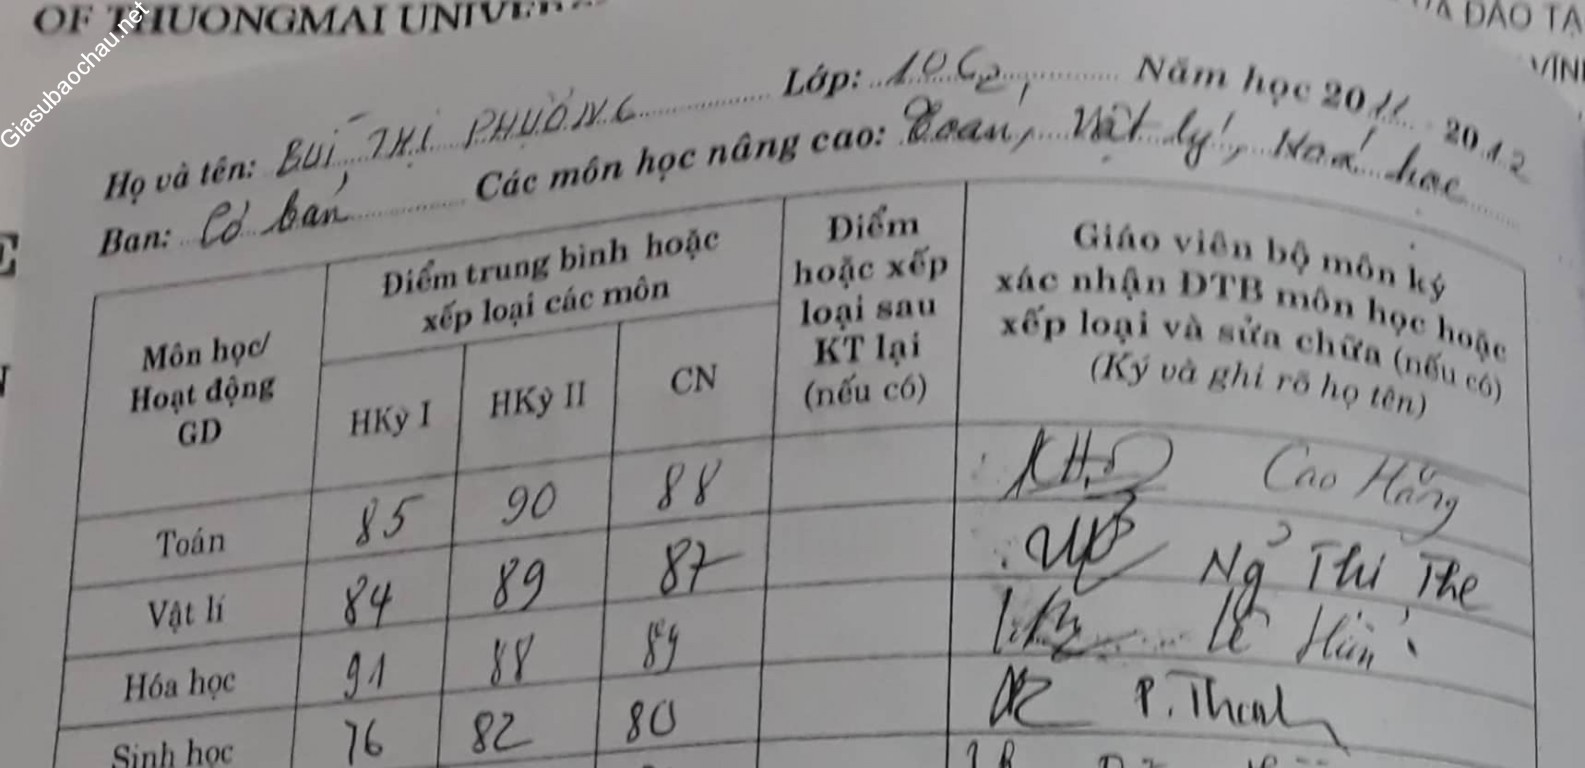 OF THUONGMAI UNIVER
VÀ ĐÀO TẠ
VĨN
Giasubaochau.net
Họ và tên: BÙI THỊ PHƯƠNG Lớp: 10C2 Năm học 2011 2012
Ban: Cơ bản Các môn học nâng cao: Toán, Vật lý, Hoá học
Môn học/
Hoạt động
GD
Điểm trung bình hoặc
xếp loại các môn
HKỳ I HKỳ II CN
Điểm
hoặc xếp
loại sau
KT lại
(nếu có)
Giáo viên bộ môn ký
xác nhận ĐTB môn học hoặc
xếp loại và sửa chữa (nếu có)
(Ký và ghi rõ họ tên)
Toán 85 90 88 Cao Hằng
Vật lí 84 89 87 Thị The
Hóa học 91 88 89 Lê
Sinh học 76 82 80 P. Thanh